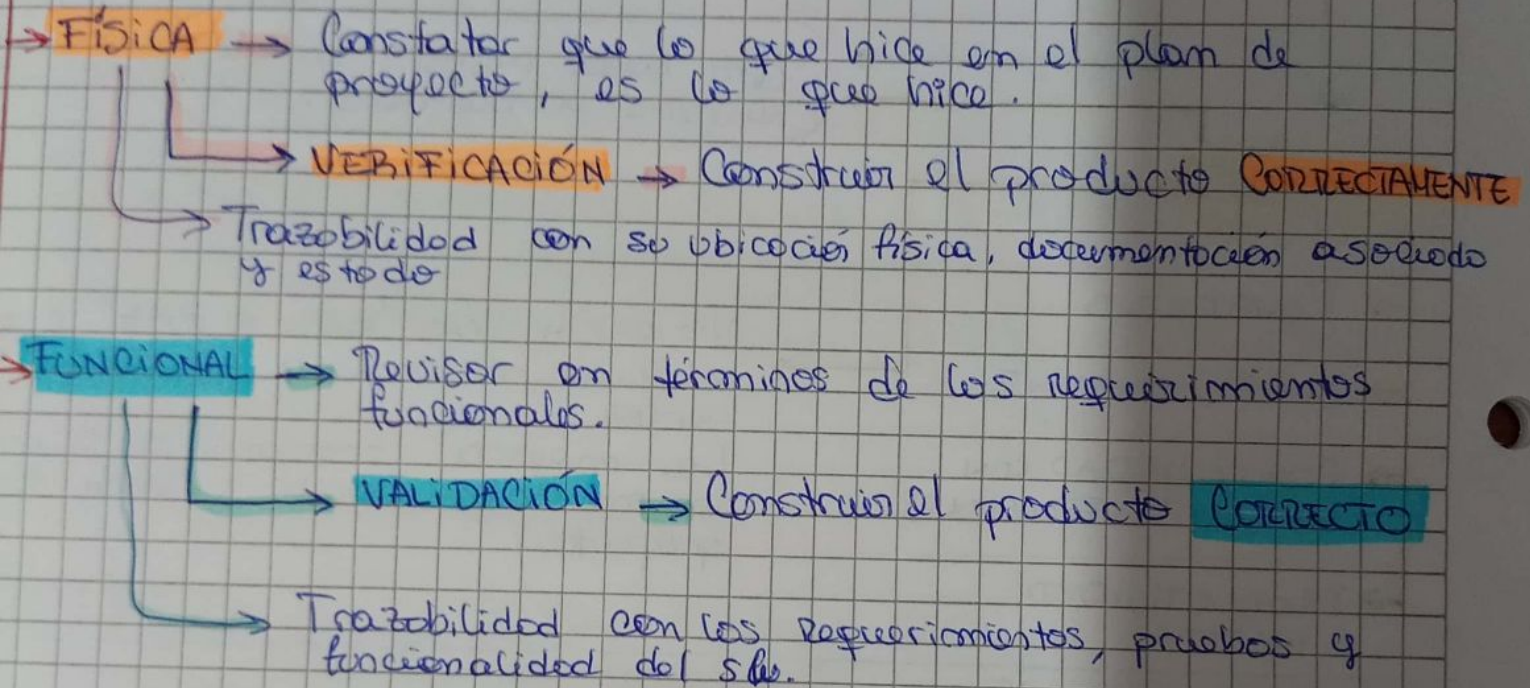 → FÍSICA → Constatar que lo que hice en el plan de
proyecto, es lo que hice.
→ VERIFICACIÓN → Construir el producto CORRECTAMENTE
→ Trazabilidad con su ubicación física, documentación asociada
y estado
→ FUNCIONAL → Revisar en términos de los requerimientos
funcionales.
→ VALIDACIÓN → Construir el producto CORRECTO
→ Trazabilidad con los requerimientos, pruebas y
funcionalidad del